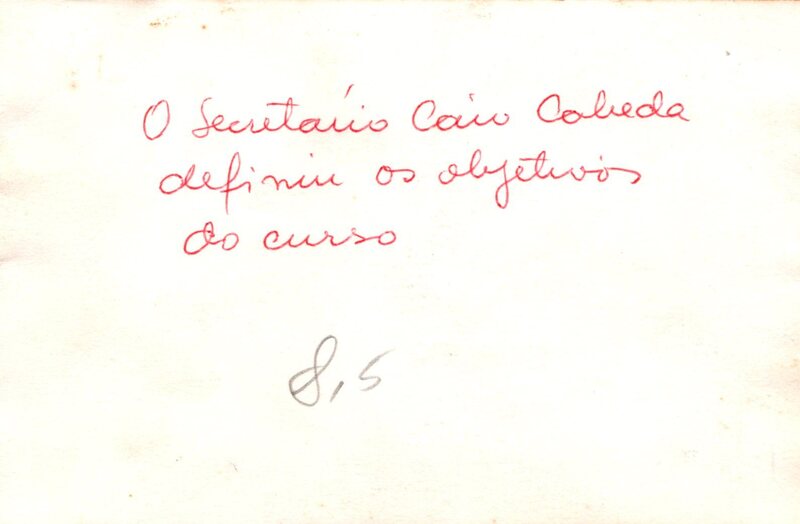 O Secretário Caio Cabeda
definiu os objetivos
do curso
8,5